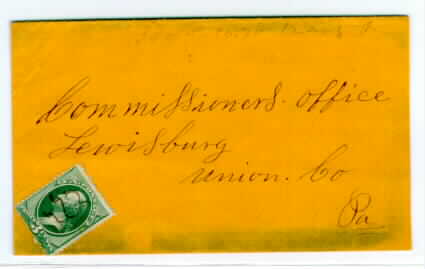 Commissioners. office
Lewisburg
Union. Co
Pa